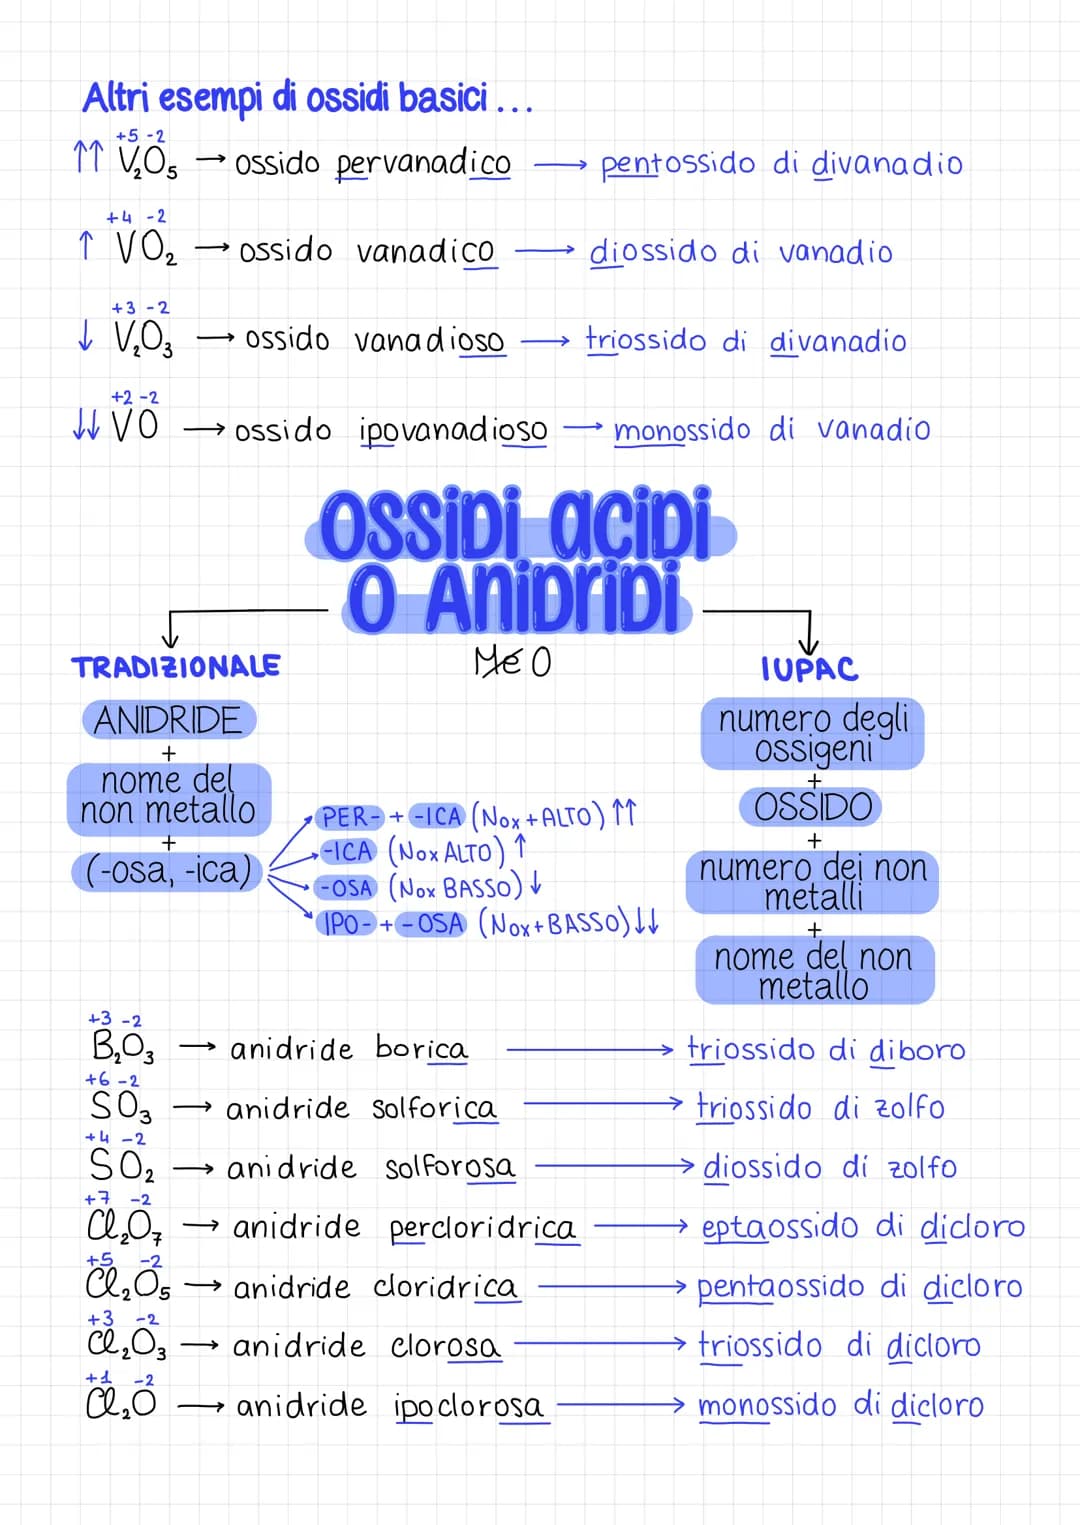 Altri esempi di ossidi basici...
+5 -2
↑↑ V₂O₅ → ossido pervanadico → pentossido di divanadio
+4 -2
↑ VO₂ → ossido vanadico → diossido di vanadio
+3 -2
↓ V₂O₃ → ossido vanadioso → triossido di divanadio
+2 -2
↓↓ VO → ossido ipovanadioso → monossido di vanadio
OSSIDI ACIDI
O ANIDRIDI
Me O
TRADIZIONALE
ANIDRIDE
+
nome del
non metallo
+
(-osa, -ica)
PER- + -ICA (Nox + ALTO) ↑↑
-ICA (Nox ALTO) ↑
-OSA (Nox BASSO) ↓
IPO- + -OSA (Nox + BASSO) ↓↓
IUPAC
numero degli
ossigeni
+
OSSIDO
+
numero dei non
metalli
+
nome del non
metallo
+3 -2
B₂O₃ → anidride borica → triossido di diboro
+6 -2
SO₃ → anidride solforica → triossido di zolfo
+4 -2
SO₂ → anidride solforosa → diossido di zolfo
+7 -2
Cl₂O₇ → anidride percloridrica → eptaossido di dicloro
+5 -2
Cl₂O₅ → anidride cloridrica → pentaossido di dicloro
+3 -2
Cl₂O₃ → anidride clorosa → triossido di dicloro
+1 -2
Cl₂O → anidride ipoclorosa → monossido di dicloro